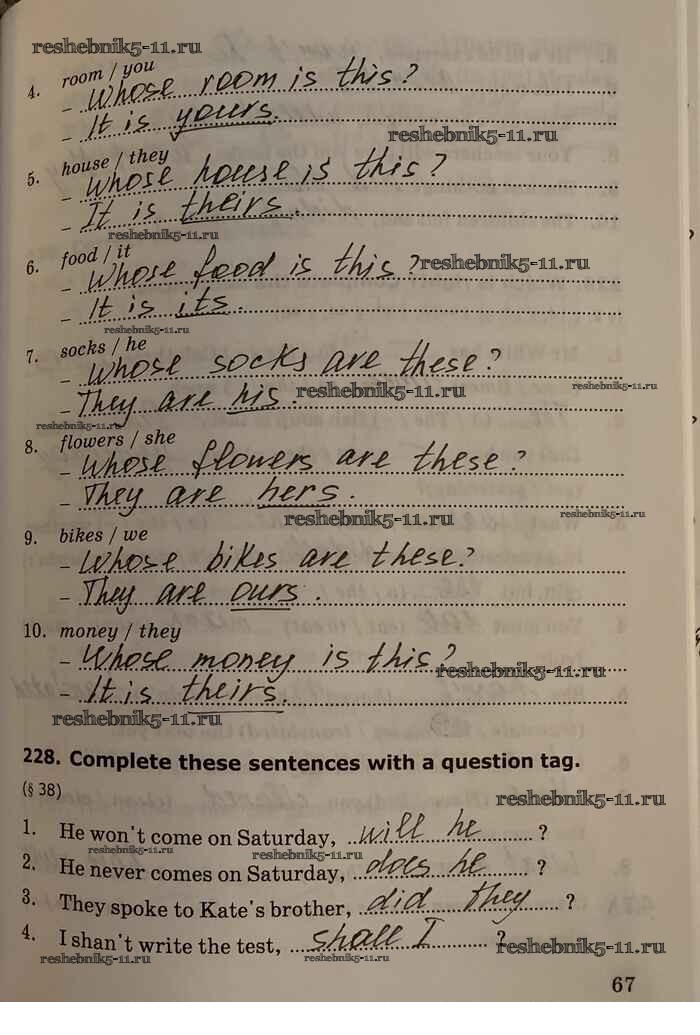 reshebnik5-11.ru
4. room / you
– Whose room is this?
– It is yours.
reshebnik5-11.ru
5. house / they
– Whose house is this?
– It is theirs.
reshebnik5-11.ru
6. food / it
– Whose food is this? reshebnik5-11.ru
– It is its.
reshebnik5-11.ru
7. socks / he
– Whose socks are these?
reshebnik5-11.ru reshebnik5-11.ru
– They are his.
reshebnik5-11.ru
8. flowers / she
– Whose flowers are these?
– They are hers.
reshebnik5-11.ru reshebnik5-11.ru
9. bikes / we
– Whose bikes are these?
– They are ours.
10. money / they
– Whose money is this?
reshebnik5-11.ru
– It is theirs.
reshebnik5-11.ru
228. Complete these sentences with a question tag.
(§ 38)
reshebnik5-11.ru
1. He won't come on Saturday, will he ?
reshebnik5-11.ru reshebnik5-11.ru
2. He never comes on Saturday, does he ?
3. They spoke to Kate's brother, did they ?
4. I shan't write the test, shall I ?
reshebnik5-11.ru
reshebnik5-11.ru reshebnik5-11.ru
67